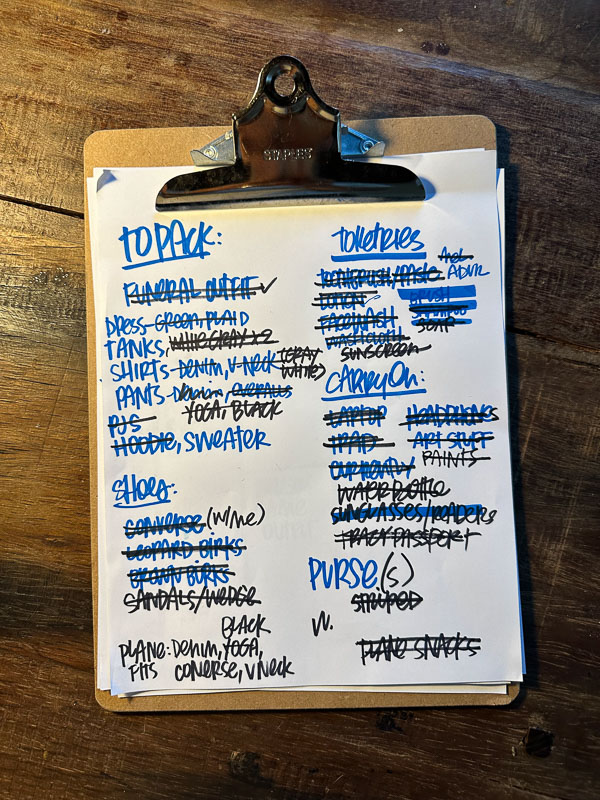 STAPLES
TO PACK:
FUNERAL OUTFIT ✓
DRESS-GREEN, PLAID
TANKS, WHITE GRAY x2
SHIRTS-DENIM, V-NECK (GRAY WHITE)
PANTS-Denim, OVERALLS
YOGA, BLACK
PJS
HOODIE, SWEATER
SHOES:
CONVERSE (W/ME)
LEOPARD BIRKS
BROWN BIRKS
SANDALS/WEDGE
BLACK
PLANE: DENIM, YOGA,
FITS CONERSE, V NECK
TOILETRIES
TOOTHBRUSH/PASTE ADVIL
LOTION BRUSH
FACEWASH SHAMPOO
WASHCLOTH SOAP
SUNSCREEN
CARRY ON:
LAPTOP HEADPHONES
IPAD ART STUFF
PAINTS
CURRENTLY
WATER BOTTLE
SUNGLASSES/READERS
PASSPORT
PURSE(S)
STRIPED
W.
PLANE SNACKS